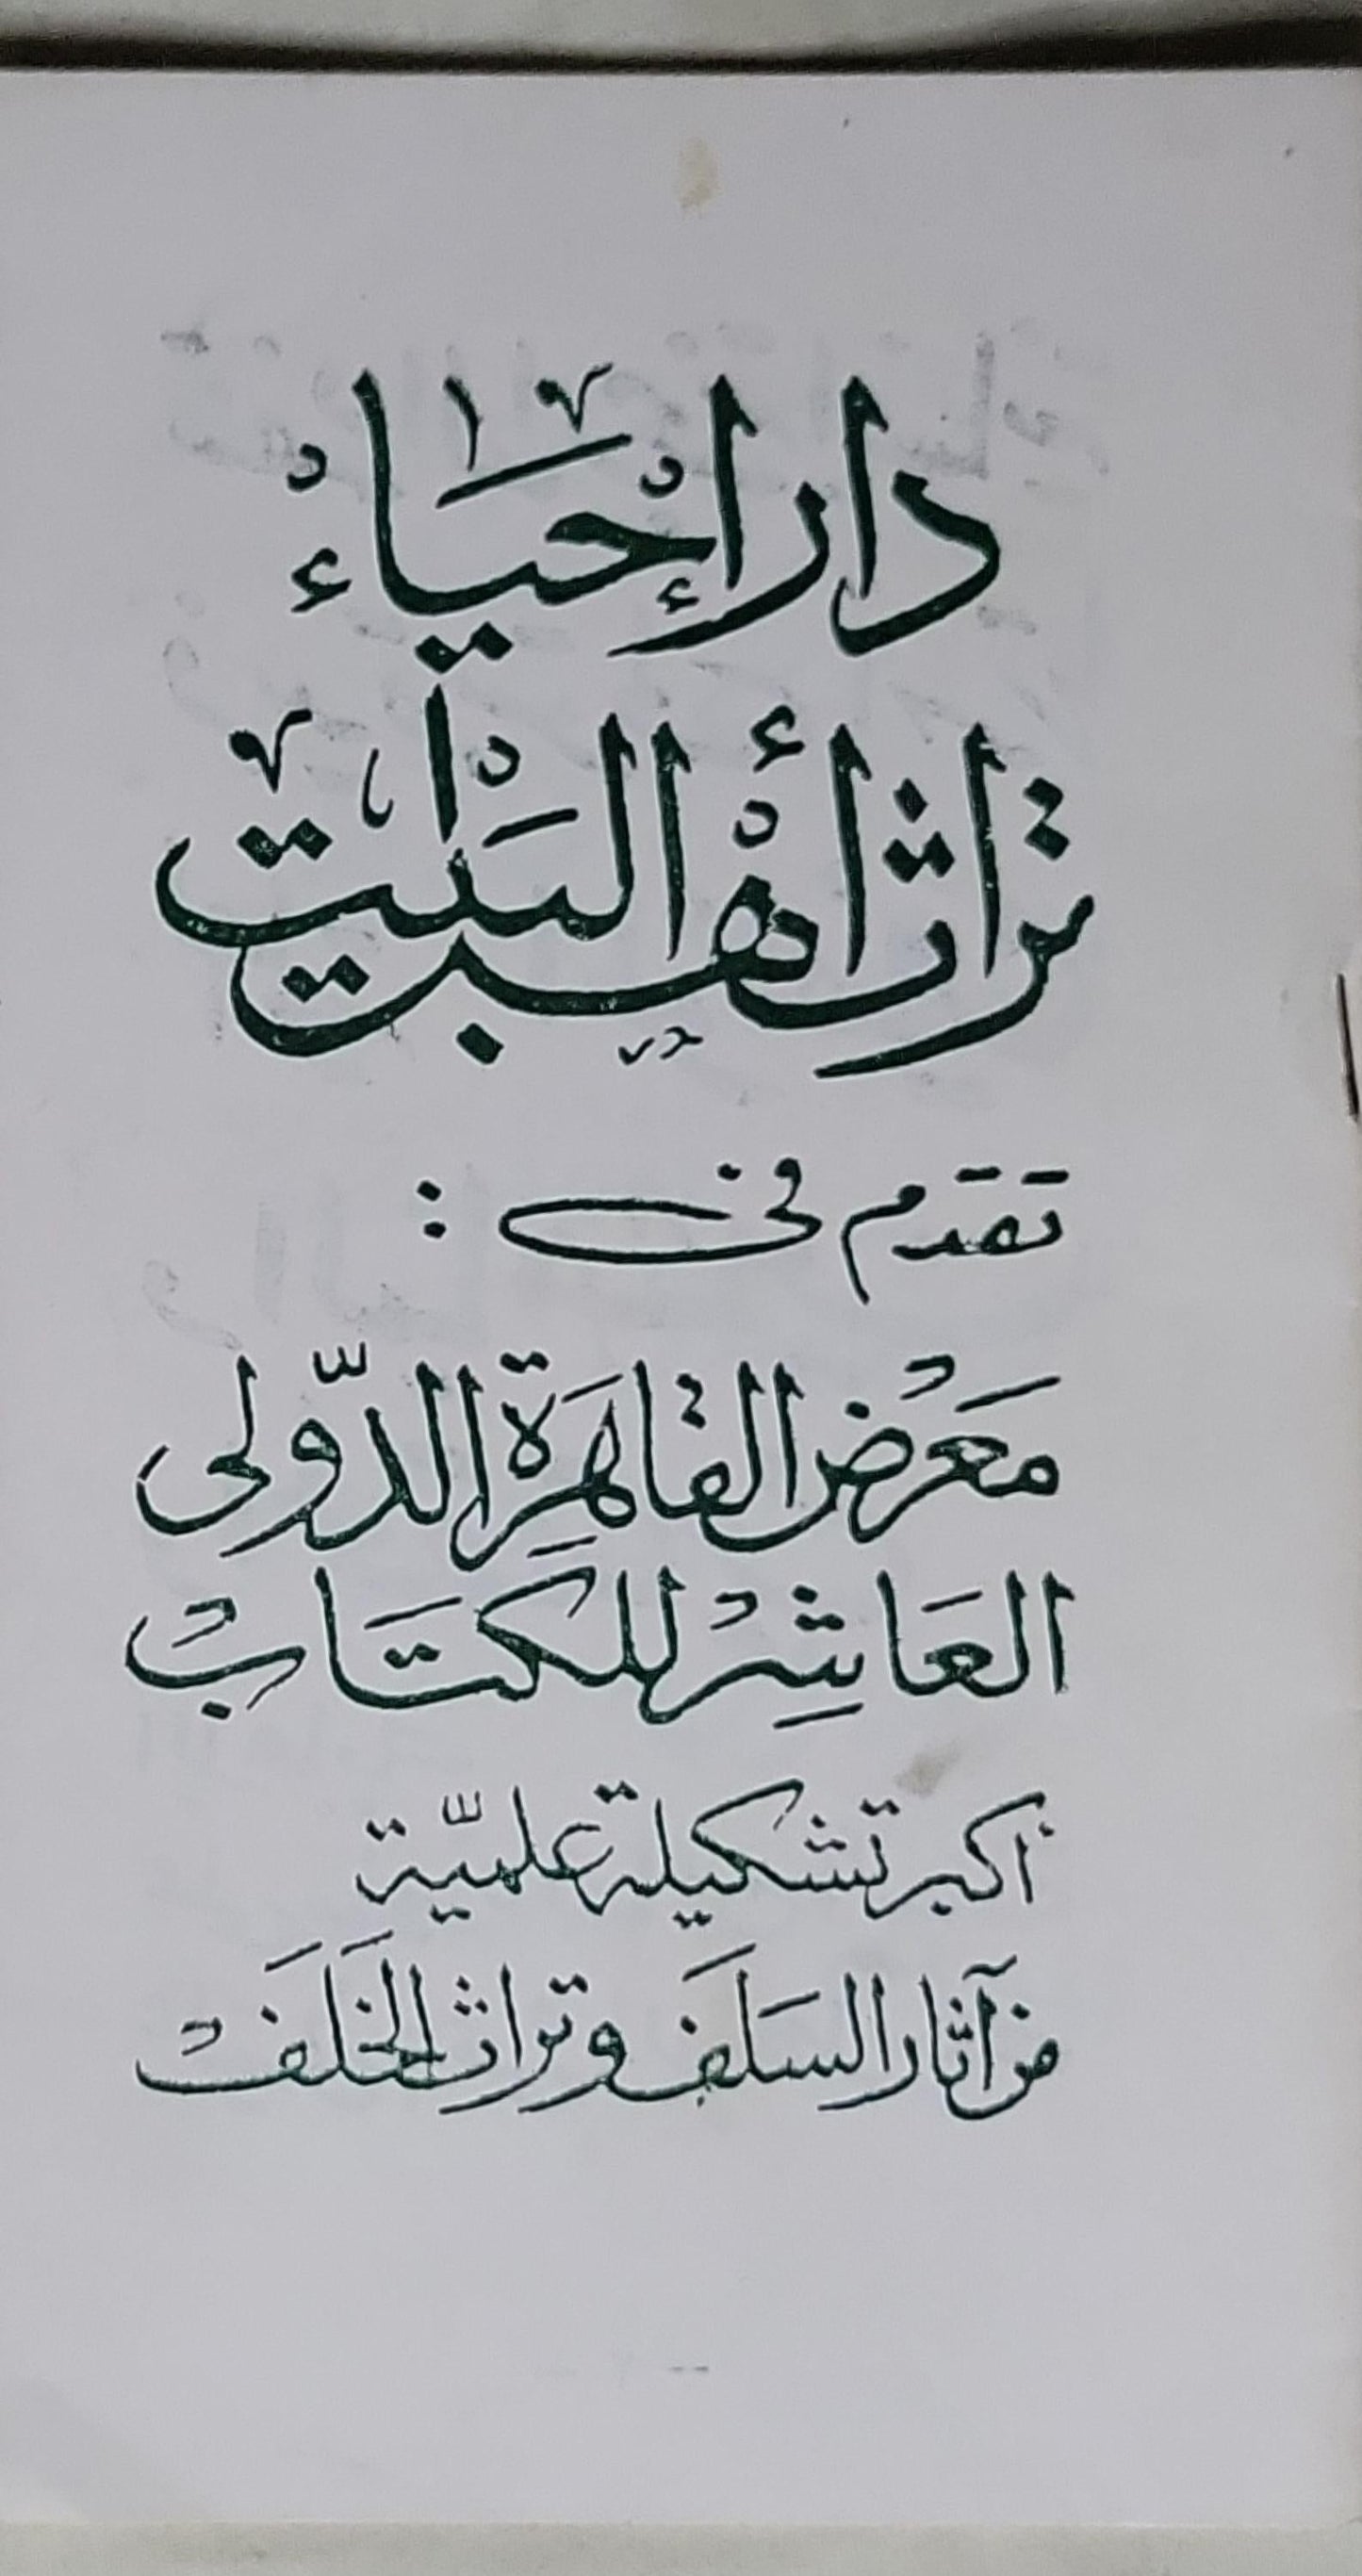 دار إحياء
تراث أهل البيت
تقدم فى :
معرض القاهرة الدولى
العاشر للكتاب
أكبر تشكيلة علمية
من آثار السلف وتراث الخلف